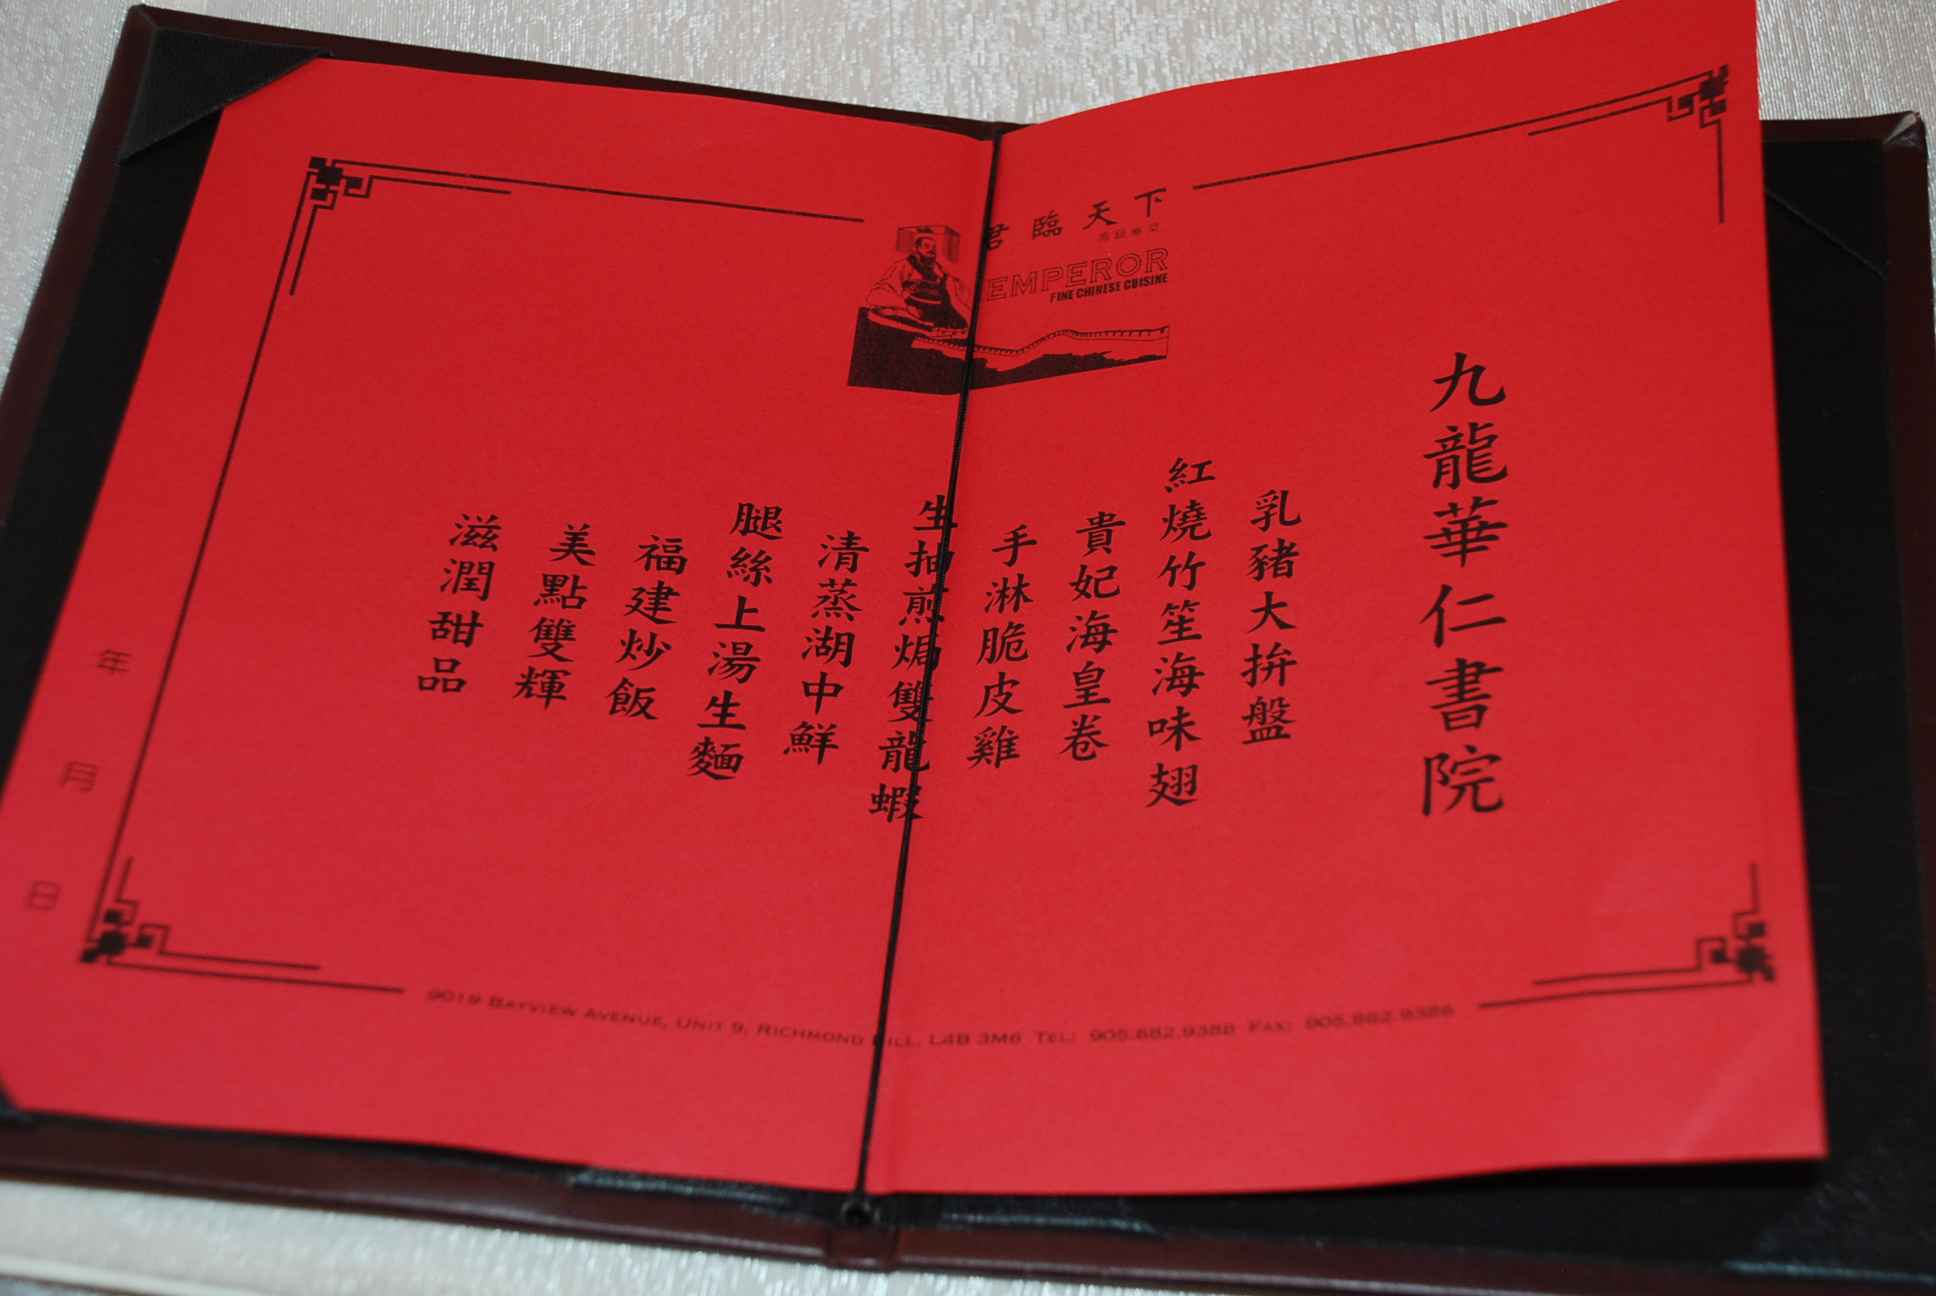 君臨天下
EMPEROR
FINE CHINESE CUISINE
九龍華仁書院
乳豬大拚盤
紅燒竹笙海味翅
貴妃海皇卷
手淋脆皮雞
生抽煎焗雙龍蝦
清蒸湖中鮮
腿絲上湯生麵
福建炒飯
美點雙輝
滋潤甜品
年 月 日
9019 BAYVIEW AVENUE, UNIT 9, RICHMOND HILL, L4B 3M6 TEL: 905.882.9388 FAX: 905.882.9386